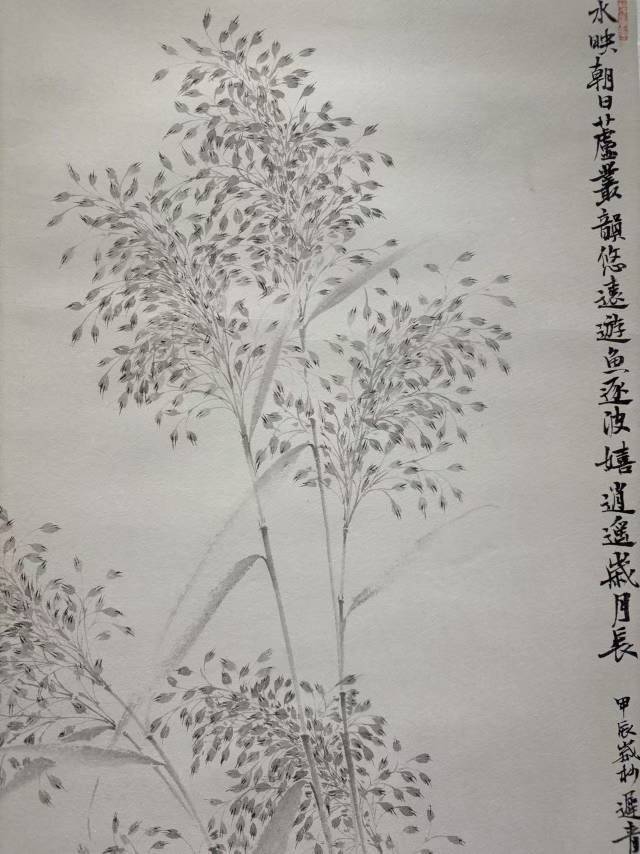 水映朝日蘆叢韻悠遠遊魚逐波嬉逍遥歲月長
甲辰歲杪遲青